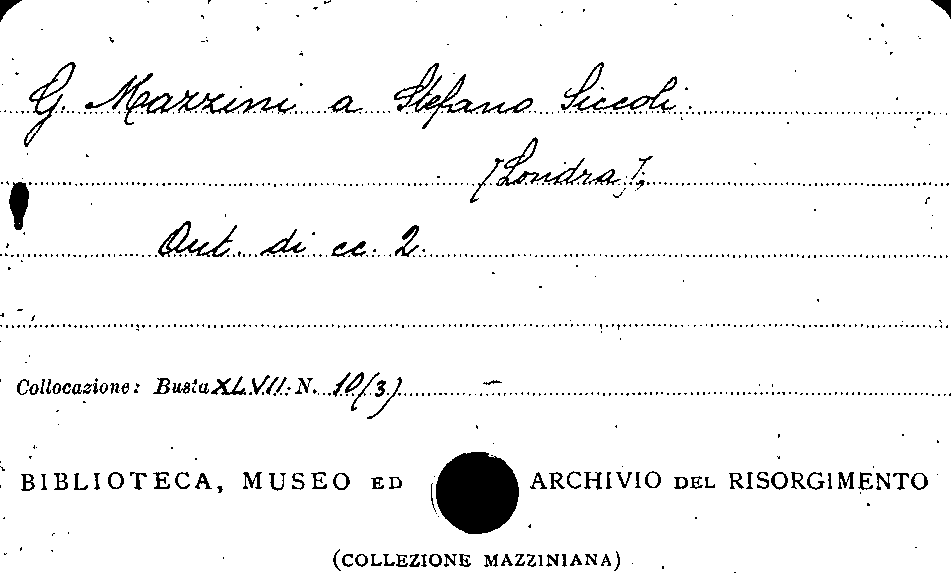 G. Mazzini a Stefano Siccoli.
[Londra],
Aut. di cc. 2.
Collocazione: Busta XLVII. N. 10(3)
BIBLIOTECA, MUSEO ED ARCHIVIO DEL RISORGIMENTO
(COLLEZIONE MAZZINIANA)